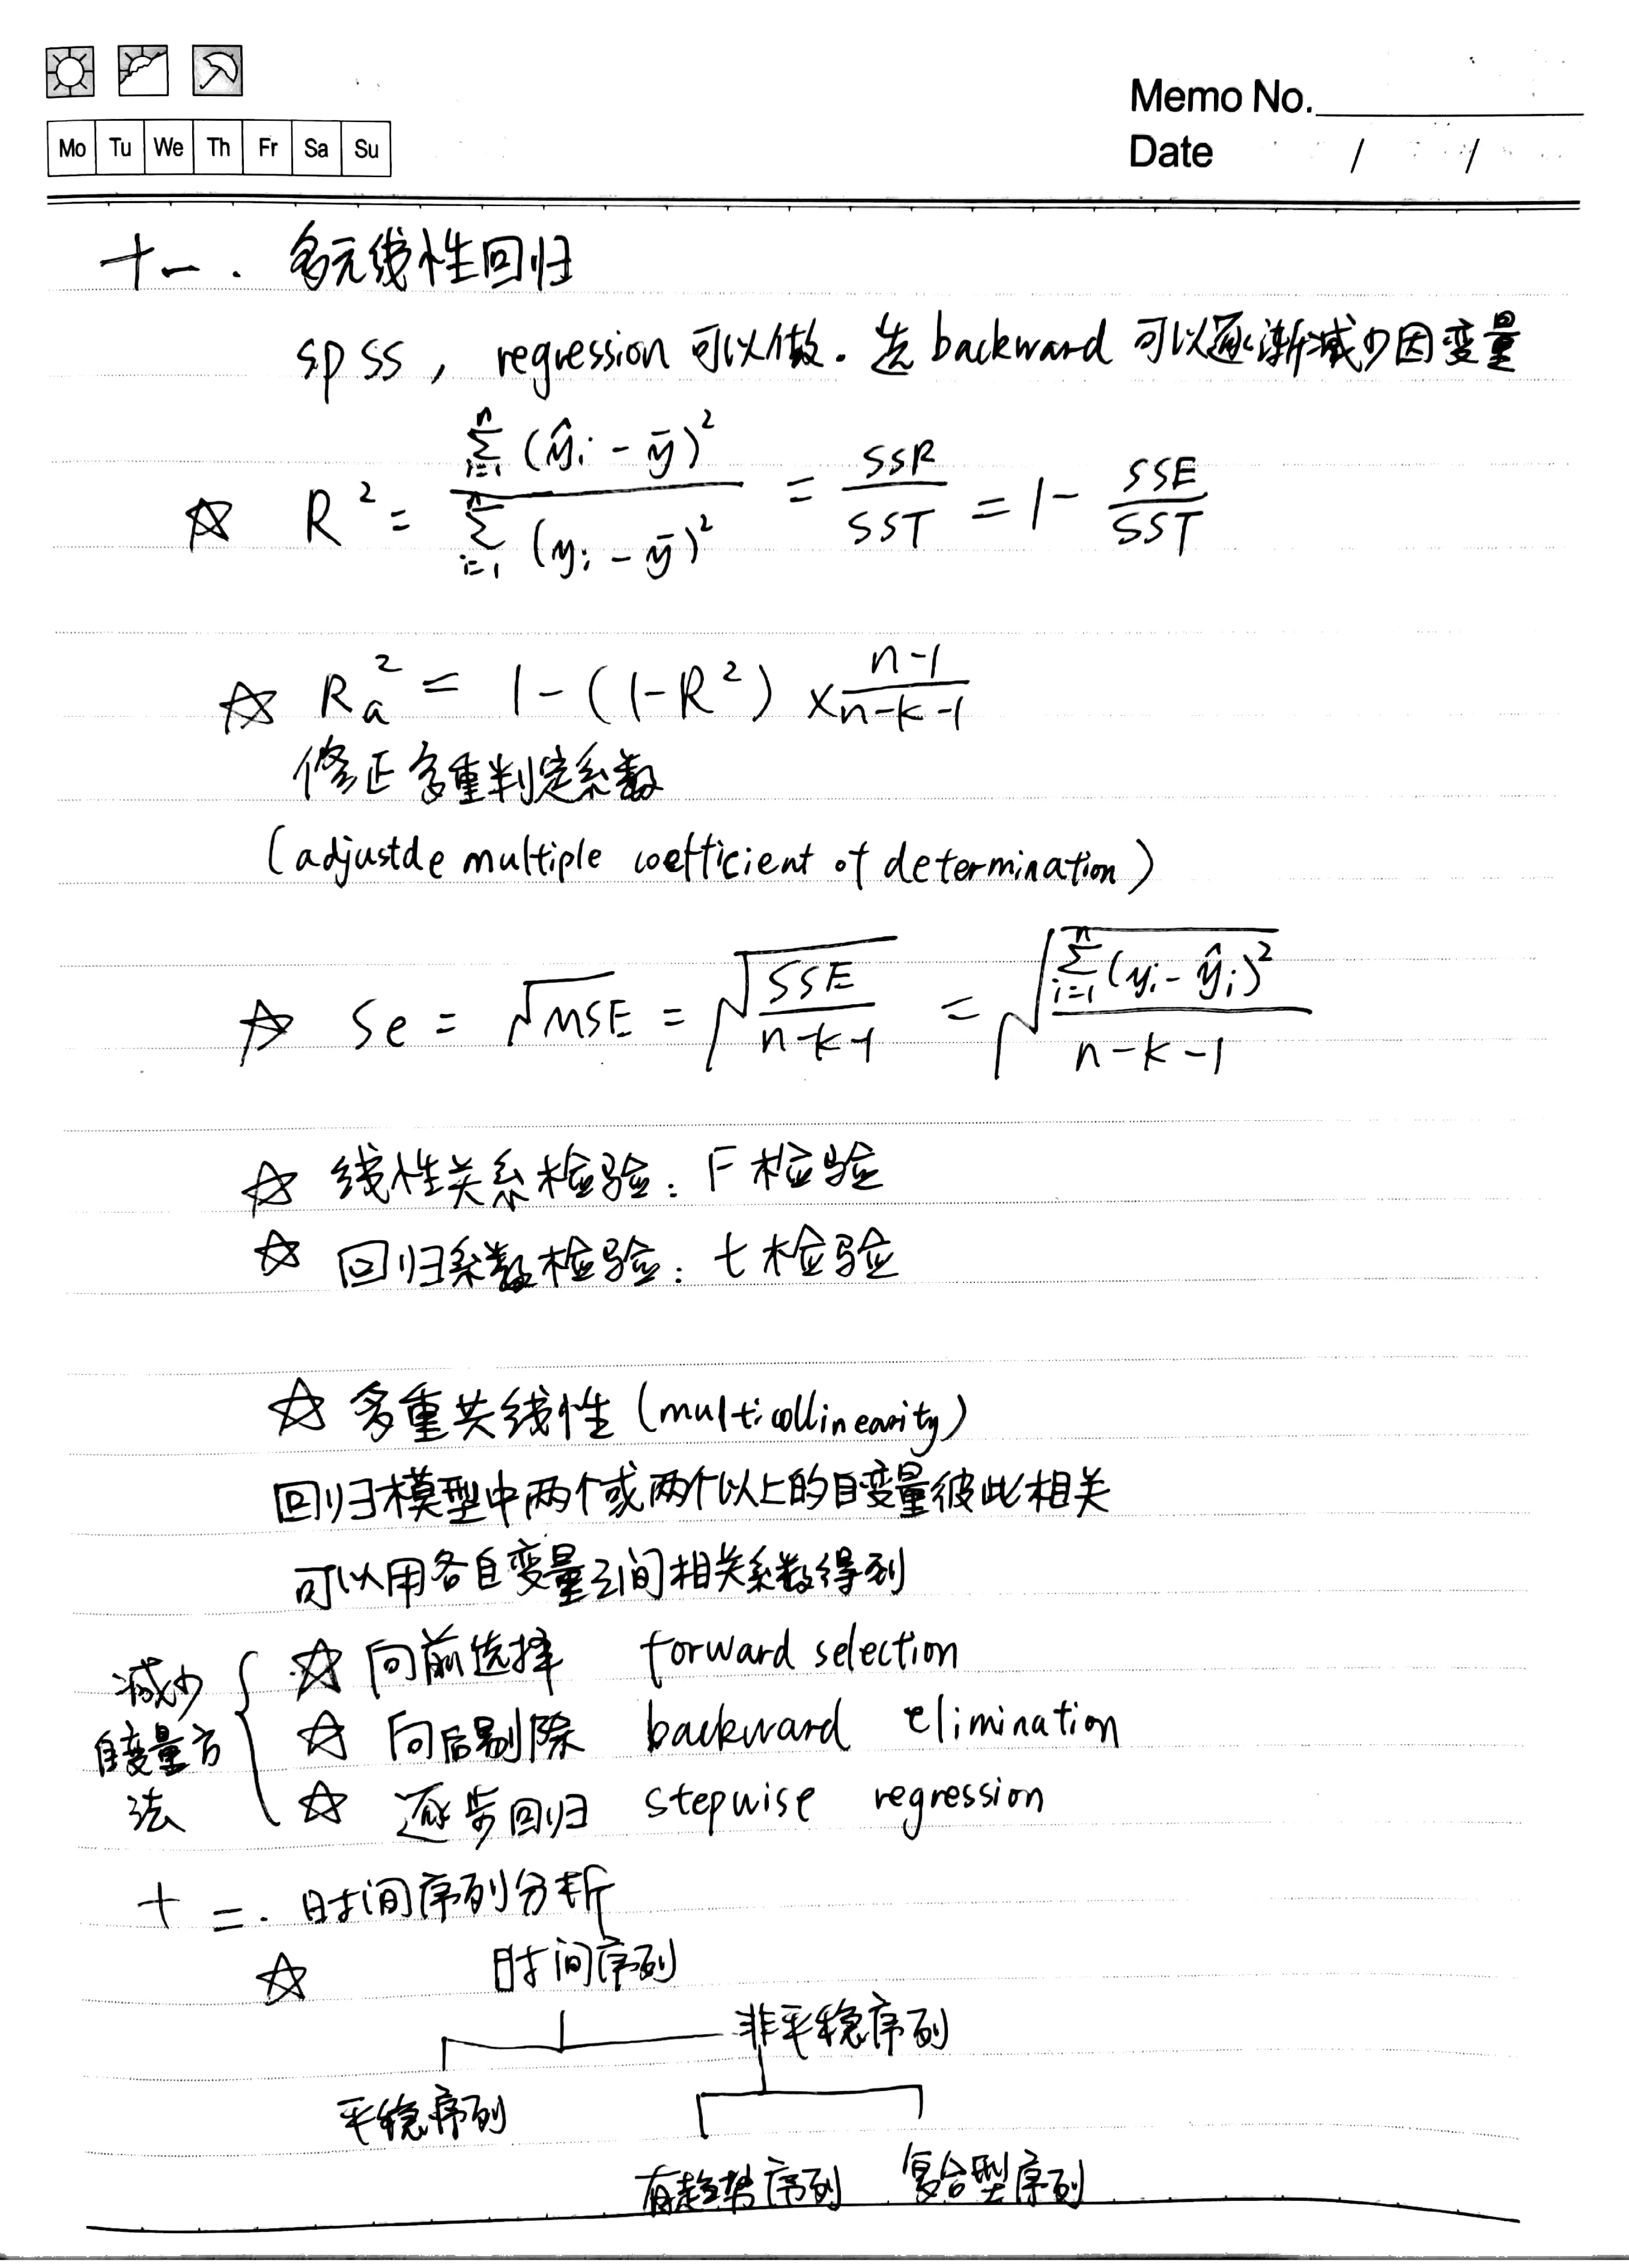 Memo No.
Mo Tu We Th Fr Sa Su
Date / /
十一. 多元线性回归
spss, regression 可以做. 选 backward 可以逐渐减少因变量
☆ R² = \frac{\sum_{i=1}^{n} (ŷi - ȳ)²}{\sum_{i=1}^{n} (yi - ȳ)²} = \frac{SSR}{SST} = 1 - \frac{SSE}{SST}
☆ Ra² = 1 - (1-R²) × \frac{n-1}{n-k-1}
修正多重判定系数
(adjustde multiple coefficient of determination)
☆ Se = \sqrt{MSE} = \sqrt{\frac{SSE}{n-k-1}} = \sqrt{\frac{\sum_{i=1}^{n} (yi - ŷi)²}{n-k-1}}
☆ 线性关系检验: F检验
☆ 回归系数检验: t检验
☆ 多重共线性 (multicollinearity)
回归模型中两个或两个以上的自变量彼此相关
可以用各自变量之间相关系数得到
减少自变量方法
☆ 向前选择 forward selection
☆ 向后剔除 backward elimination
☆ 逐步回归 stepwise regression
十二. 时间序列分析
☆ 时间序列
非平稳序列
平稳序列
有趋势序列 复合型序列